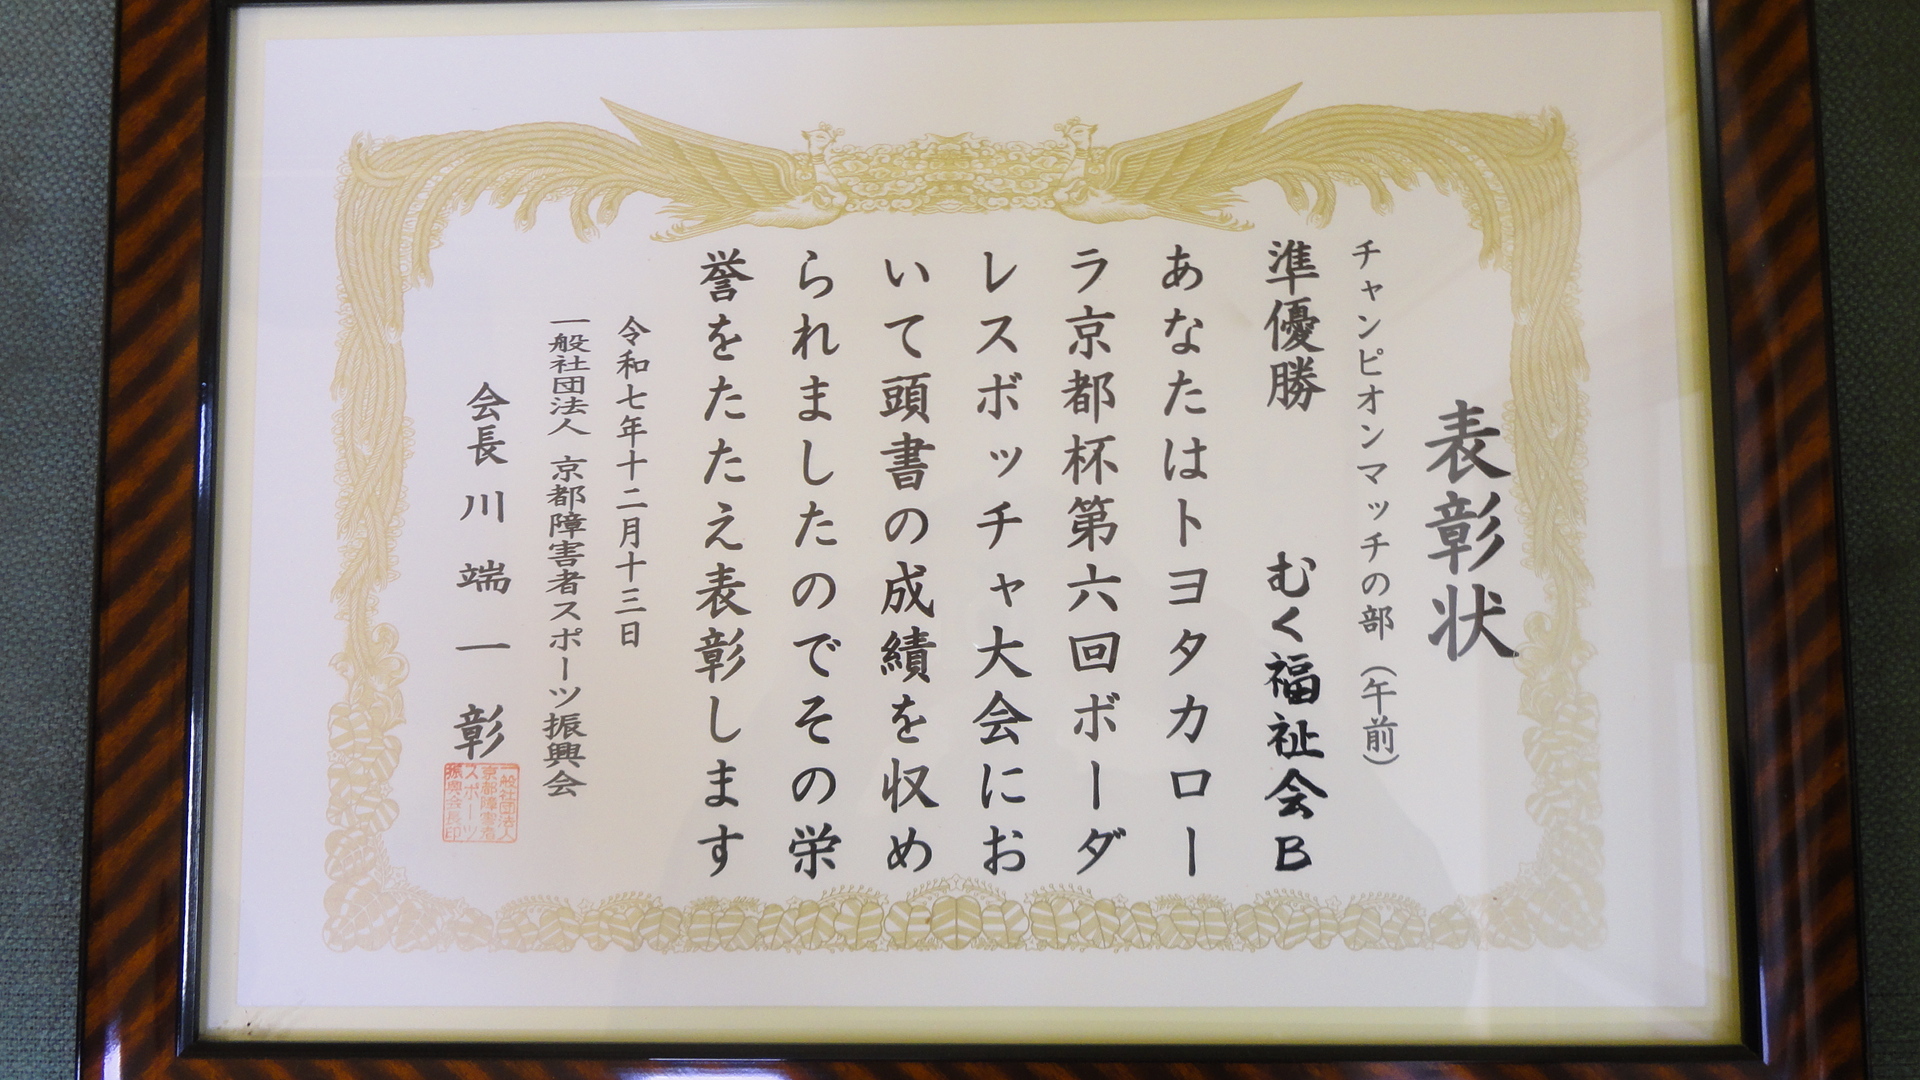 表彰状
チャンピオンマッチの部（午前）
準優勝 むく福祉会B
あなたはトヨタカロー
ラ京都杯第六回ボーダ
レスボッチャ大会にお
いて頭書の成績を収め
られましたのでその栄
誉をたたえ表彰します
令和七年十二月十三日
一般社団法人 京都障害者スポーツ振興会
会長 川端一彰
一般社団法人
京都障害者
スポーツ
振興会長印